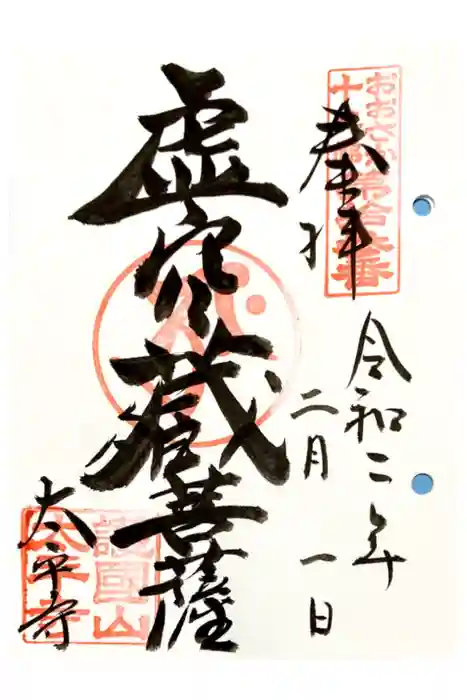 奉拝
おおさか
十三佛
第拾三番
令和二年
二月
一日
虚空蔵菩薩
太平寺
護國山
太平寺